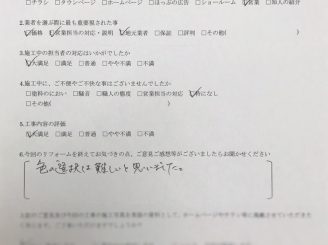 □チラシ □タウンページ □ホームページ □ほっぷの広告 □ショールーム ☑営業 □知人の紹介
2.業者を選ぶ際に最も重要視された事
☑価格 ☑営業担当の対応・説明 ☑地元業者 □保証 □評判 □その他(
3.施工中の担当者の対応はいかがでしたか
☑大満足 □満足 □普通 □やや不満 □不満
4.施工中に、ご不便やご不快な事はございませんでしたか
□塗料のにおい □騒音 □職人の態度 □営業担当の対応 ☑特になし
□その他(
5.工事内容の評価
☑大満足 □満足 □普通 □やや不満 □不満
6.今回のリフォームを終えてお気づきの点、ご意見ご感想等がございましたらお聞かせください
色の選択は難しいと思いました。